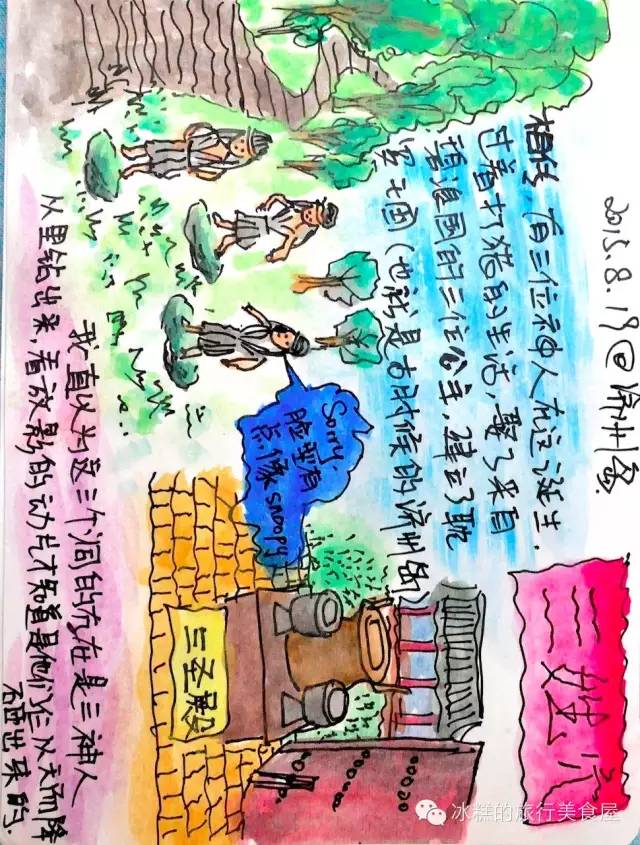 三姓穴
2015.8.19@济州岛
相传,有三位神人在这诞生,
过着打猎的生活,娶了来自
碧浪国的三位公主,建立了耽
罗国(也就是古时候的济州岛)
Sorry
脸型有
点像snoopy
三圣殿
我一直以为这三个洞的存在是三神人
从里钻出来,看放影的动片才知道是他们仨从天而降
砸出来的.
冰糕的旅行美食屋